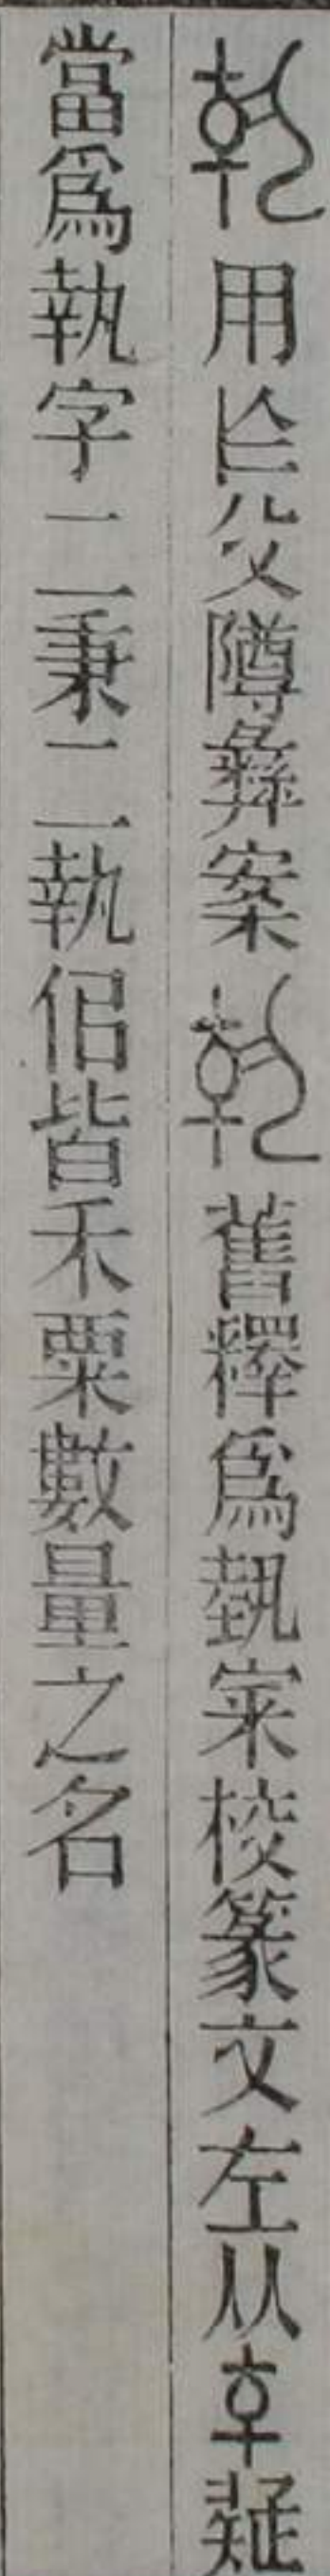 用𠤏父隮彝案舊釋爲埶宷校篆文左从㚔疑
當爲執字二秉二執佀皆禾粟數量之名